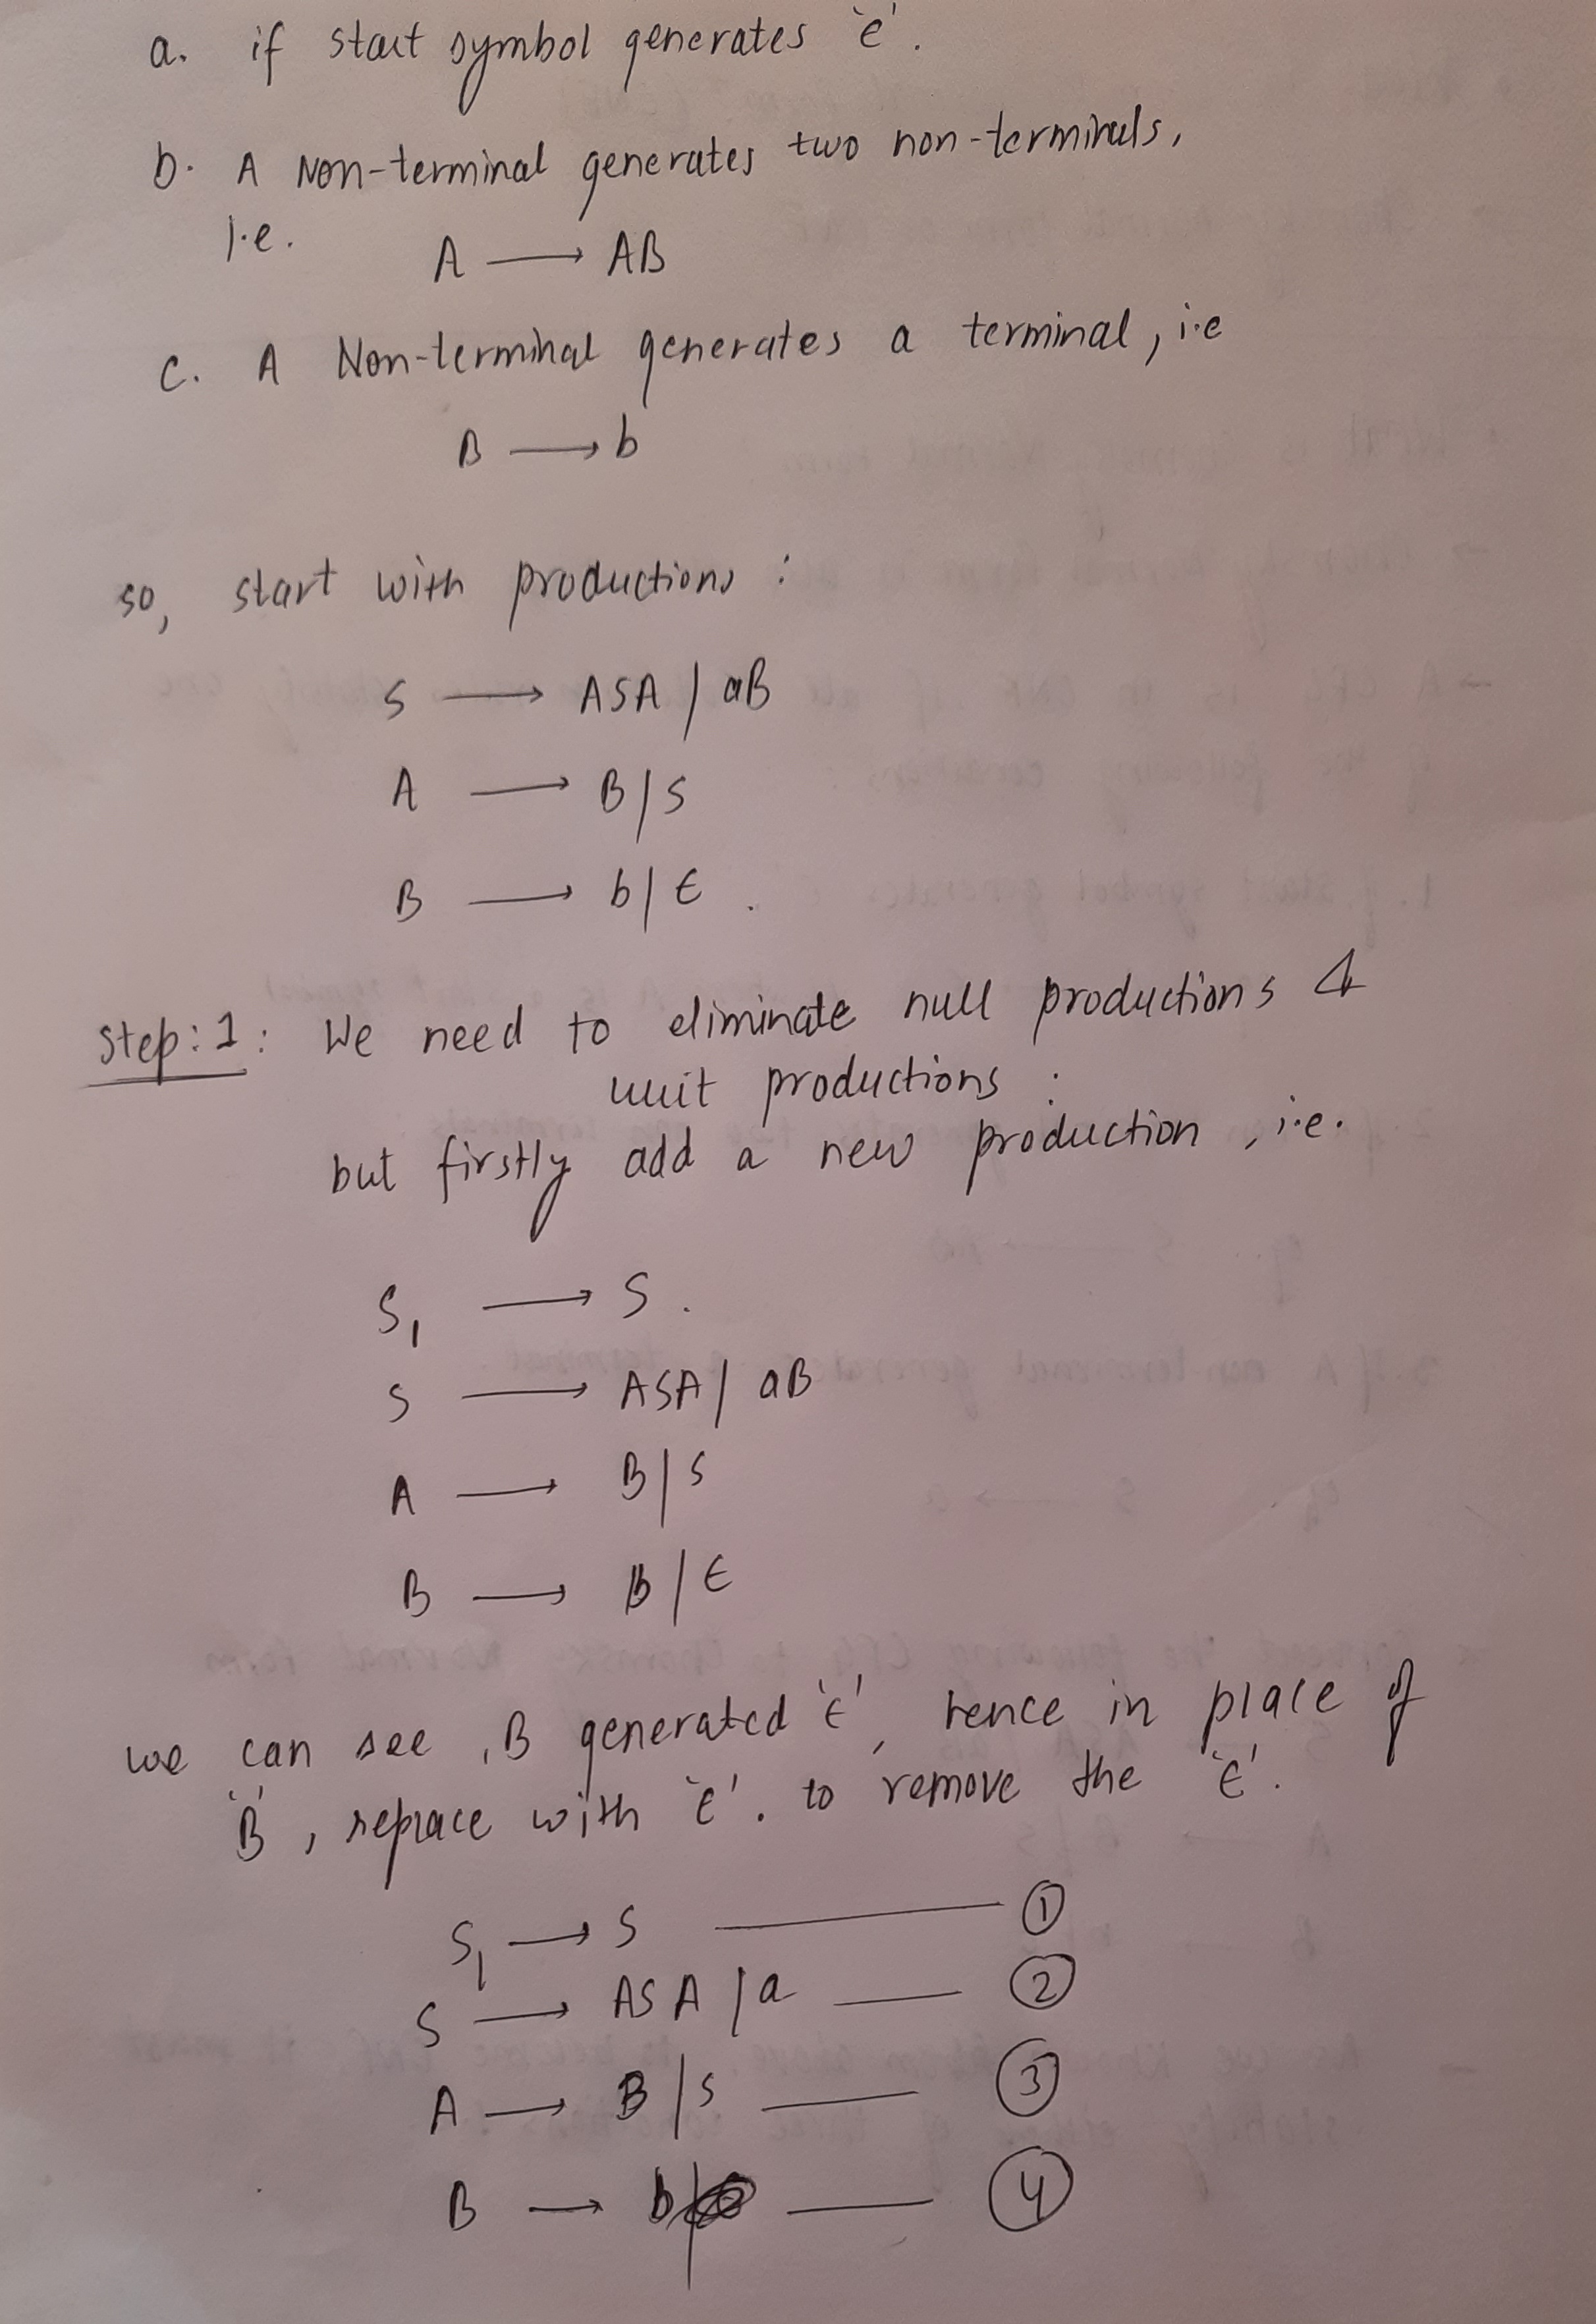 a. if start symbol generates 'ϵ'.
b. A Non-terminal generates two non-terminals,
i.e. A → AB
c. A Non-terminal generates a terminal, i.e
B → b
so, start with productions :
S → ASA / aB
A → B/S
B → b/ϵ .
Step:1: We need to eliminate null productions &
unit productions :
but firstly add a new production, i.e.
S₁ → S .
S → ASA / aB
A → B/S
B → b/ϵ
we can see, B generated 'ϵ', hence in place of
'B', replace with 'ϵ'. to remove the 'ϵ'.
S₁ → S — ①
S → ASA /a — ②
A → B/S — ③
B → b/ — ④